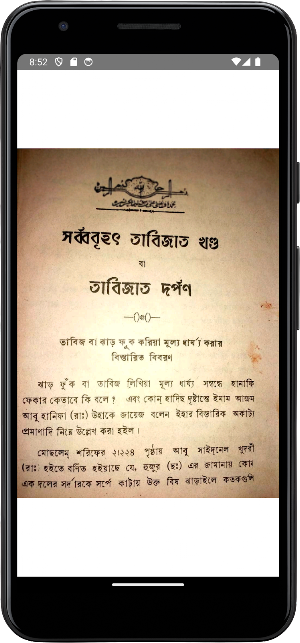 8:52
সর্ব্ববৃহৎ তাবিজাত খণ্ড
বা
তাবিজাত দর্পণ
তাবিজ বা ঝাড় ফুক করিয়া মূল্য ধার্য্য করার
বিস্তারিত বিবরণ
ঝাড় ফুঁক বা তাবিজ লিখিয়া মূল্য ধার্য্য সম্বন্ধে হানাফি
ফেকার কেতাবে কি বলে? এবং কোন্ হাদিছ দৃষ্টান্তে ইমাম আজম
আবু হানিফা (রাঃ) উহাকে জায়েজ বলেন ইহার বিস্তারিক অকাট্য
প্রমাণাদি নিম্নে উল্লেখ করা হইল।
মোছলেম্ শরিফের ২/২২৪ পৃষ্ঠায় আবু সাইদনেল খুদরী
(রাঃ) হইতে বর্ণিত হইয়াছে যে, হুজুর (ছঃ) এর জামানায় কোন
এক দলের সর্দারকে সর্পে কাটায় উক্ত বিষ ঝাড়াইলে কতকগুলি